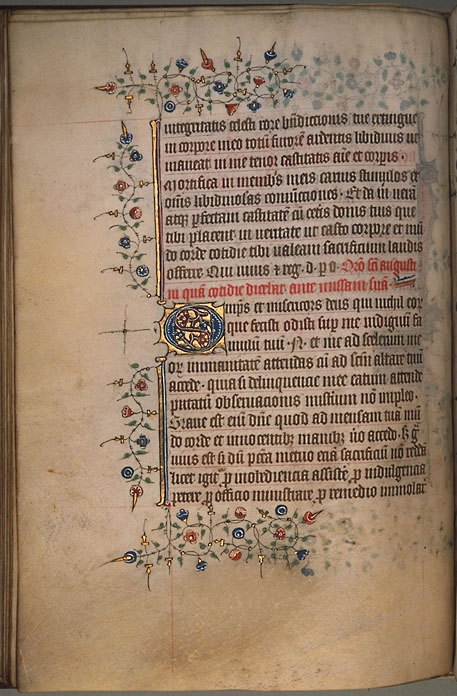 integritatis celesti rore bn̄dictionis tue extingue
in corpore meo totū furorē ardentis libidinis ut
maneat in me tenor castitatis aīe et corpīs ·
Mortifica in membīs meis carnis stimulos et
om̄s libidinosas com̄ociones · Et da m̄ verā
atq; ꝓfectam castitatē cū cet̄is donis tuis que
tibi placent in veritate ut casto corpore et mū
do corde cotidie tibi valeam sacrificium laudis
offerre Qui vivis ⁊ reg̅. d. p o. Oro̅ sc̅i augusti
in quā cotidie dicebat ante missam suā
Om̄ps et misericors deus qui nichil eor̅
que fecisti odisti sup̄ me indignū fa
mulū tuū · N · et nic̄ ad scelerum me
or̅ immanitatē attendas cū ad sc̅m altare tuū
accedo · quasi delinquencie mee ream attende
putatū observacionis mist̄iū nō impleo ·
Grave est eni̅ dn̄e quod ad mensam tuā mū
do corde et innocentib; manib; nō accedo · Sꝫ g̅
vius est si dū pctā metuo eciā sacrificiū nō redda
licet igit̄ ꝓ inobediencia assistē ꝓ indulgencia
petere ꝓ officio ministrare ꝓ remedio immolar̅